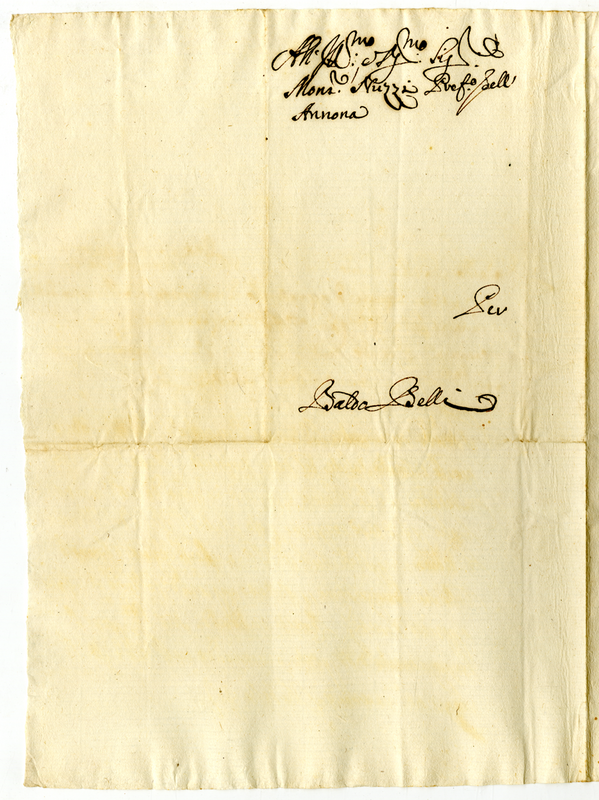 All' Ill.mo e R.mo Sig.re
Mons.r Nuzzi Pref.o dell'
Annona
Per
Baldo Belli